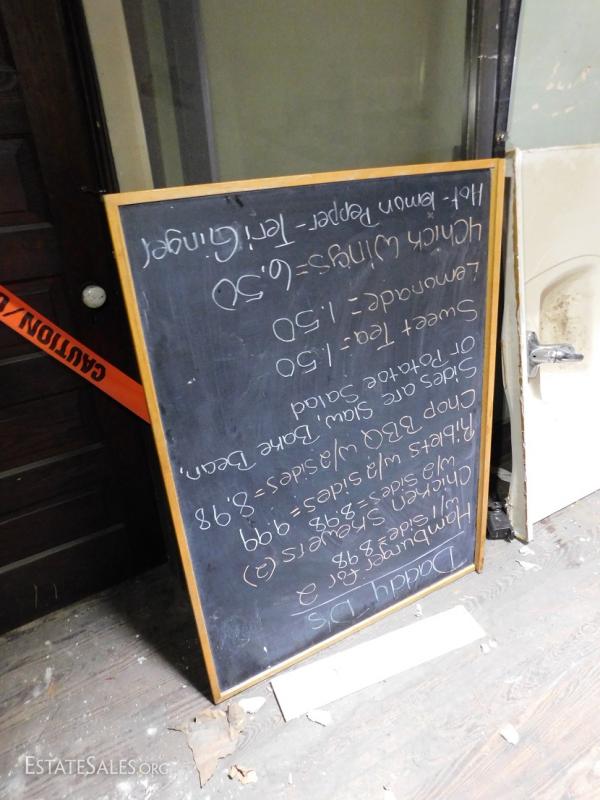 Daddy D's
Hamburger for 2
w/1 side = 8.98
Chicken Skewers (2)
w/2 sides = 8.98
Riblets w/2 sides = 9.99
Chop BBQ w/2 sides = 8.98
Sides are Slaw, Bake Bean,
or Potatoe Salad
Sweet Tea = 1.50
Lemonade = 1.50
4 Chick Wings = 6.50
Hot - lemon Pepper - Teri Ginger
CAUTION/
ESTATESALES.ORG